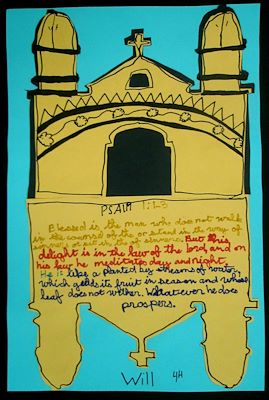 PSALM 1:1-3
Blessed is the man who does not walk
in the counsel of the or stand in the way of
sinners or sit in the of sinners. But his
delight is in the law of the lord, and on
his law he meditates day and night.
He is like a planted by streams of water,
which yields its fruit in season and whose
leaf does not wither. Whatever he does
prospers.
Will 4H